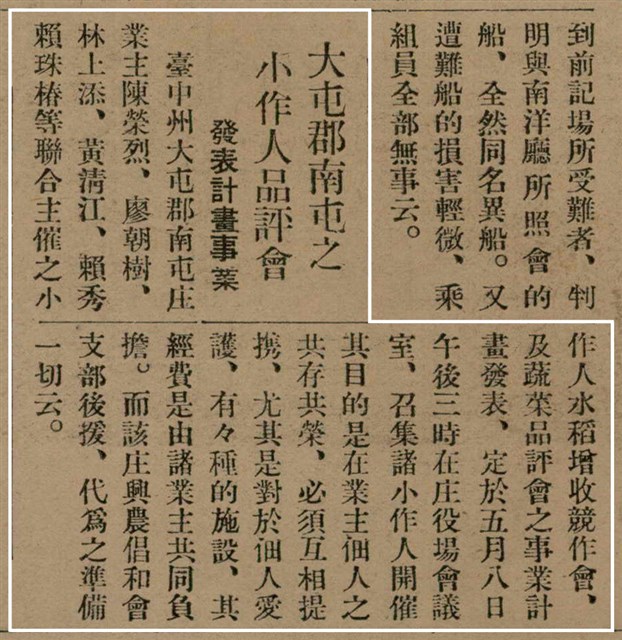 到前記場所受難者、判
明與南洋廳所照會的
船、全然同名異船。又
遭難船的損害輕微、乘
組員全部無事云。
大屯郡南屯之
小作人品評會
發表計畫事業
臺中州大屯郡南屯庄
業主陳榮烈、廖朝樹、
林上添、黃淸江、賴秀
賴珠椿等聯合主催之小
作人水稻增收競作會、
及蔬菜品評會之事業計
畫發表、定於五月八日
午後三時在庄役場會議
室、召集諸小作人開催
其目的是在業主佃人之
共存共榮、必須互相提
携、尤其是對於佃人愛
護、有々種的施設、其
經費是由諸業主共同負
擔。而該庄興農倡和會
支部後援、代爲之準備
一切云。